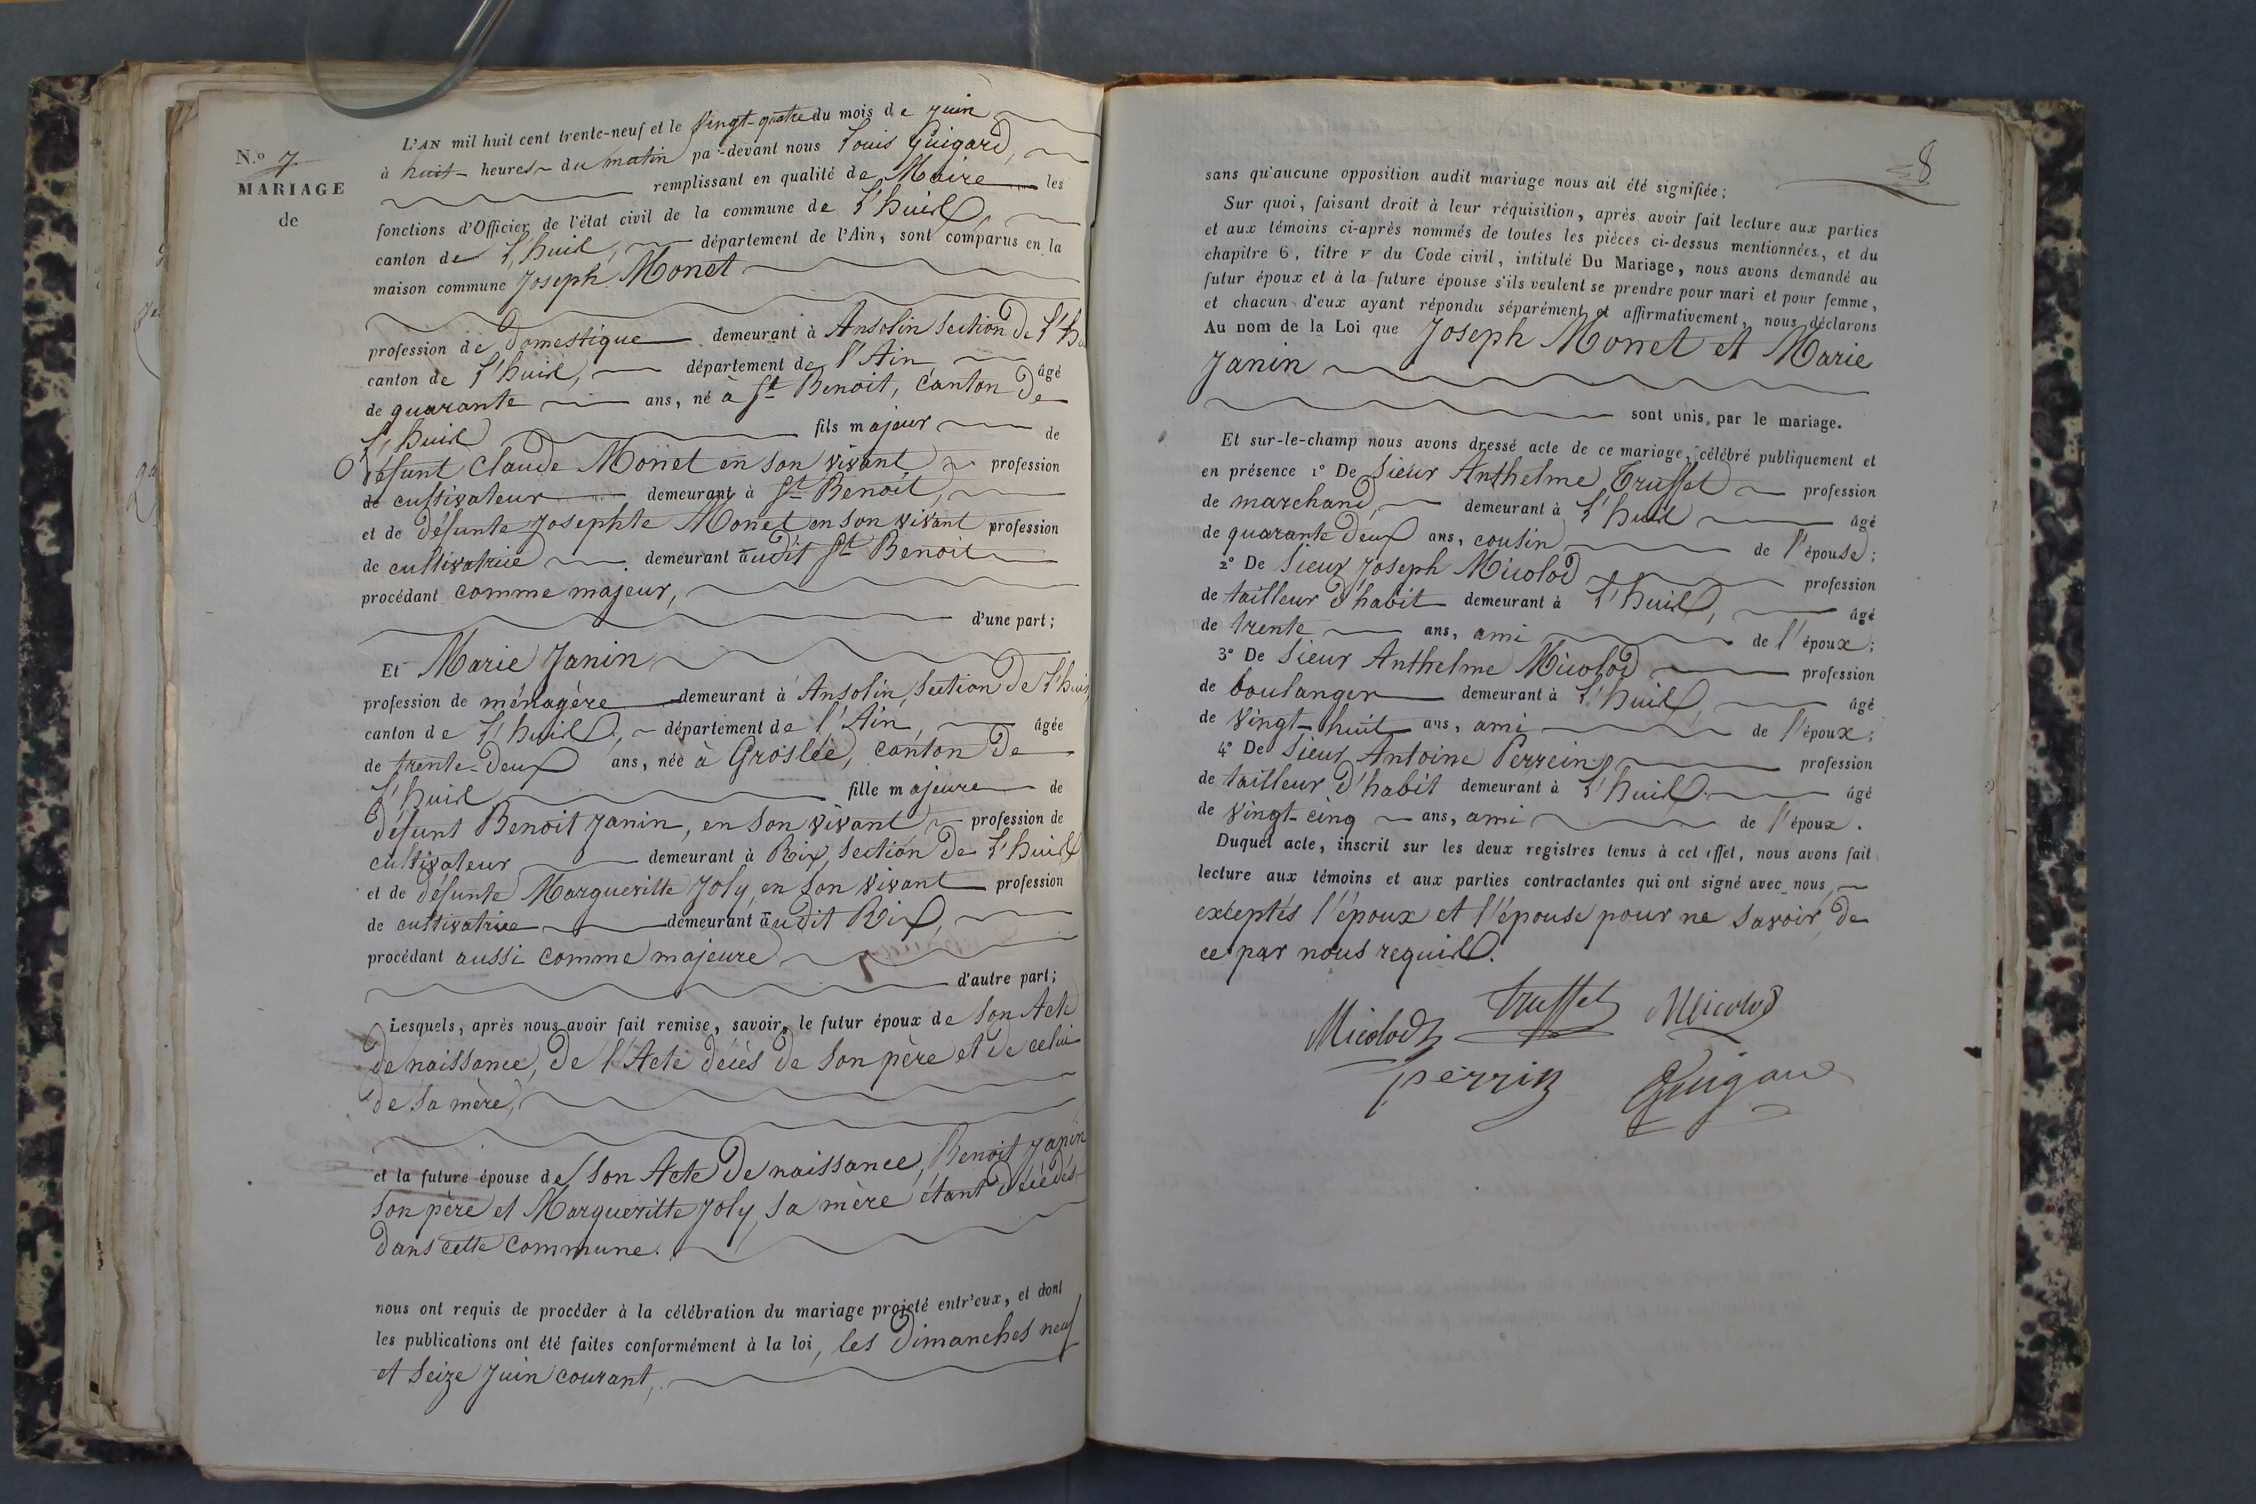 N.º 7
MARIAGE
de
L'AN mil huit cent trente-neuf et le vingt-quatre du mois de juin
à huit heures du matin pa-devant nous Louis Guigard,
remplissant en qualité de Maire les
fonctions d'Officier de l'état civil de la commune de L'huis,
canton de L'huis, département de l'Ain, sont comparus en la
maison commune Joseph Monet
profession de Domestique demeurant à Ansolin section de L'hu
canton de L'huis, département de l'Ain âgé
de quarante ans, né à St Benoit, canton de
L'huis fils majeur de
défunt Claude Monet en son vivant profession
de cultivateur demeurant à St Benoit,
et de défunte Josephte Monet en son vivant profession
de cultivatrice demeurant audit St Benoit
procédant comme majeur,
d'une part;
Et Marie Janin
profession de ménagère demeurant à Ansolin, section de L'huis,
canton de L'huis, département de l'Ain, âgée
de trente-deux ans, née à Groslée, canton de
L'huis fille majeure de
défunt Benoit Janin, en son vivant profession de
cultivateur demeurant à Rix, section de L'huis
et de défunte Margueritte Joly, en son vivant profession
de cultivatrice demeurant audit Rix,
procédant aussi comme majeure
d'autre part;
Lesquels, après nous avoir fait remise, savoir, le futur époux de son Acte
de naissance, de l'Acte décès de son père et de celui
de sa mère,
et la future épouse de son Acte de naissance, Benoit Janin
son père et Margueritte Joly, sa mère étant décédés
dans cette commune.
nous ont requis de procéder à la célébration du mariage projeté entr'eux, et dont
les publications ont été faites conformément à la loi, les Dimanches neuf
et seize juin courant,
8
sans qu'aucune opposition audit mariage nous ait été signifiée;
Sur quoi, faisant droit à leur réquisition, après avoir fait lecture aux parties
et aux témoins ci-après nommés de toutes les pièces ci-dessus mentionnées, et du
chapitre 6, titre v du Code civil, intitulé Du Mariage, nous avons demandé au
futur époux et à la future épouse s'ils veulent se prendre pour mari et pour femme,
et chacun d'eux ayant répondu séparément et affirmativement, nous déclarons
Au nom de la Loi que Joseph Monet et Marie
Janin
sont unis par le mariage.
Et sur-le-champ nous avons dressé acte de ce mariage, célébré publiquement et
en présence 1º De Sieur Anthelme Truffet profession
de marchand, demeurant à L'huis âgé
de quarante deux ans, cousin de l'épouse;
2º De Sieur Joseph Micolod profession
de tailleur d'habit demeurant à L'huis, âgé
de trente ans, ami de l'époux;
3º De Sieur Anthelme Micolod profession
de boulanger demeurant à L'huis, âgé
de vingt-huit ans, ami de l'époux;
4º De Sieur Antoine Perrein profession
de tailleur d'habit demeurant à L'huis âgé
de vingt-cinq ans, ami de l'époux.
Duquel acte, inscrit sur les deux registres tenus à cet effet, nous avons fait
lecture aux témoins et aux parties contractantes qui ont signé avec nous
exceptés l'époux et l'épouse pour ne savoir de
ce par nous requis.
Micolod Truffet Micolod
perrin Guigard